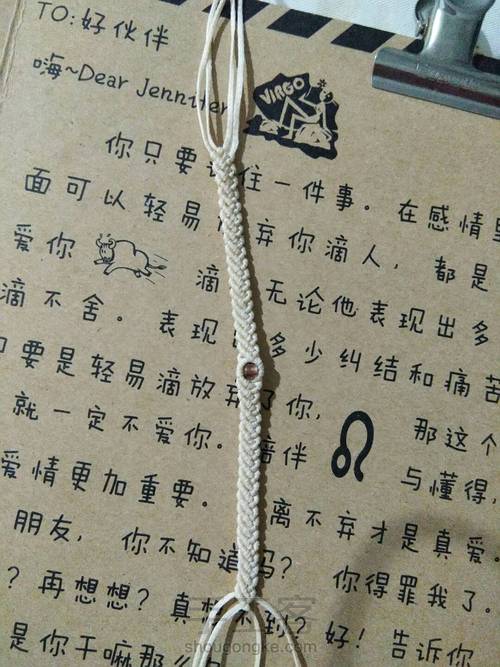 TO:好伙伴
嗨~Dear Jennifer
VIRGO
你只要 住一件事。在感情里
面可以轻易 弃你滴人, 都是
爱你 滴 无论他表现出多
滴不舍。表现 多少纠结和痛苦
要是轻易滴放弃了你,
就一定不爱你。陪伴 那这个
爱情更加重要。 与懂得,
离不弃才是真爱。
朋友, 你不知道吗? 你得罪我了。
?再想想?真想不到?好!告诉你
是你干嘛那么
shougongke.com